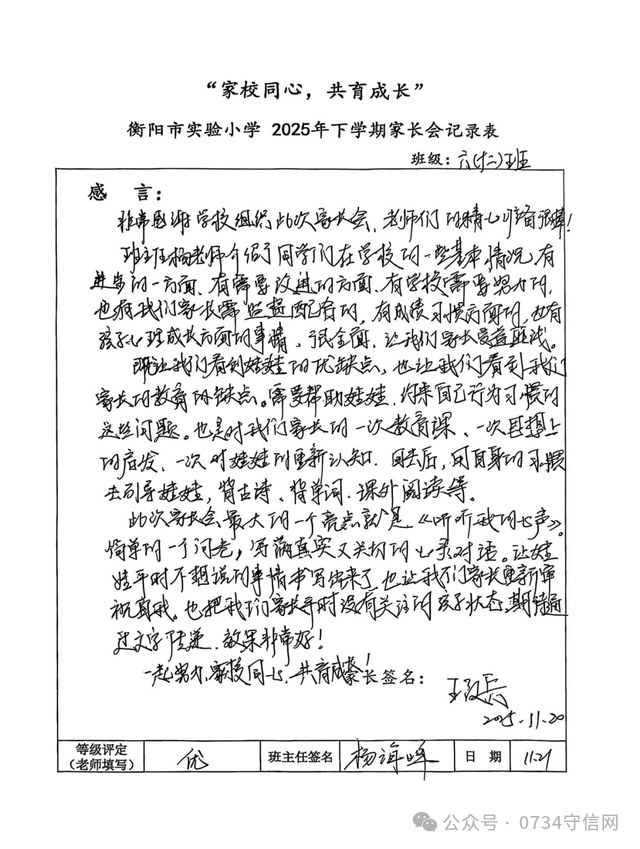 “家校同心，共育成长”
衡阳市实验小学 2025年下学期家长会记录表
班级：六(十二)班
感 言：
非常感谢学校组织此次家长会，老师们的精心准备很棒！
班主任杨老师介绍了同学们在学校的一些基本情况，有
进步的一方面，有需要改进的方面，有学校需要努力的，
也有我们家长需监督配合的，有成绩习惯方面的，也有
孩子心理成长方面的事情，很全面，让我们家长受益匪浅。
既让我们看到娃娃的优缺点，也让我们看到我们
家长的教育的缺点。需要帮助娃娃，约束自己行为习惯的
这些问题。也是对我们家长的一次教育课、一次思想上
的启发、一次对娃娃的重新认知。回去后，同自身的习惯
去引导娃娃，背古诗、背单词、课外阅读等。
此次家长会最大的一个亮点就是《听听我的心声》。
简单的一个问卷，写满真实又关切的心灵对话。让娃
娃平时不想说的事情书写出来了，也让我们家长重新审
视自我。也把我们家长平时没有关注的孩子状态，期待通
过文字传递，效果非常好！
一起努力，家校同心，共育成长！
家长签名：
2025.11.20
等级评定
（老师填写）
优
班主任签名
杨海峰
日 期
11.21
公众号 · 0734守信网